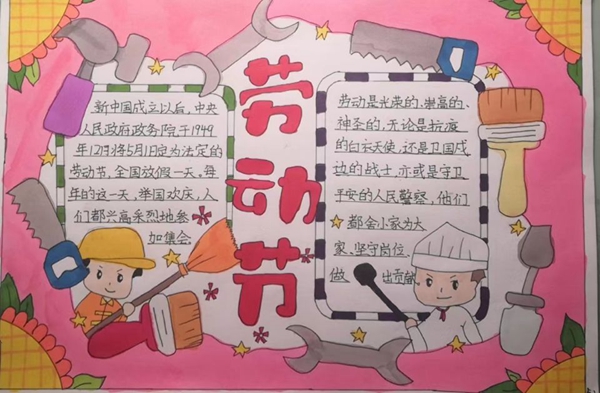 劳动节
新中国成立以后,中央
人民政府政务院于1949
年12月将5月1日定为法定的
劳动节,全国放假一天,每
年的这一天,举国欢庆,人
们都兴高采烈地参
加集会。
劳动是光荣的、崇高的、
神圣的,无论是抗疫
的白衣天使,还是卫国戍
边的战士,亦或是守卫
平安的人民警察,他们
都会小家为大
家,坚守岗位,
做 出贡献